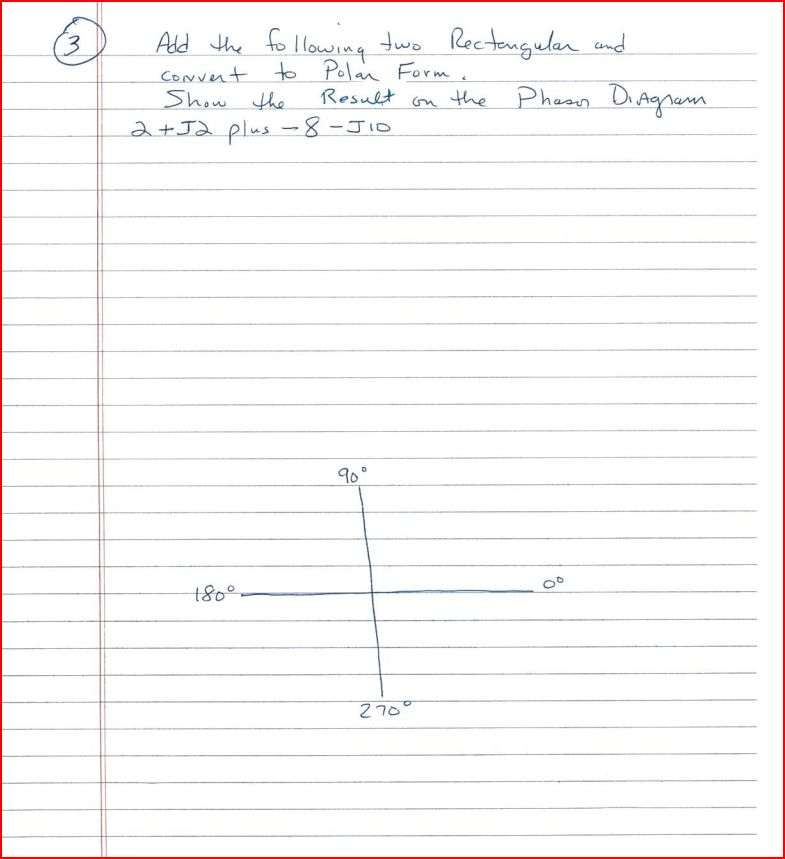 3 Add the following two Rectangular and
convert to Polar Form.
Show the Result on the Phasor Diagram
2+J2 plus -8 -J10
90°
180° 0°
270°